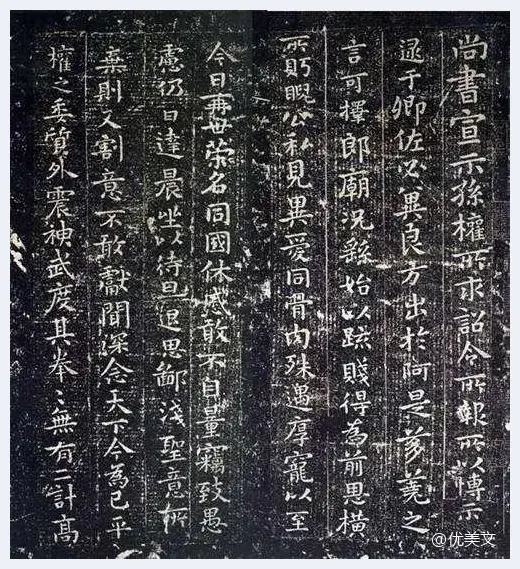 尚書宣示孫權所求詔令所報所以博示
逮于卿佐必異良方出於阿是芻蕘之
言可擇郎廟況繇始以疏賤得為前恩橫
所眄睨公私見異愛同骨肉殊遇厚寵以至
今日再世榮名同國休慼敢不自量竊致愚
慮仍日達晨坐以待旦退思鄙淺聖意所
棄則又割意不敢獻聞深念天下今為已平
權之委質外震神武度其拳〻無有二計高
@优美文